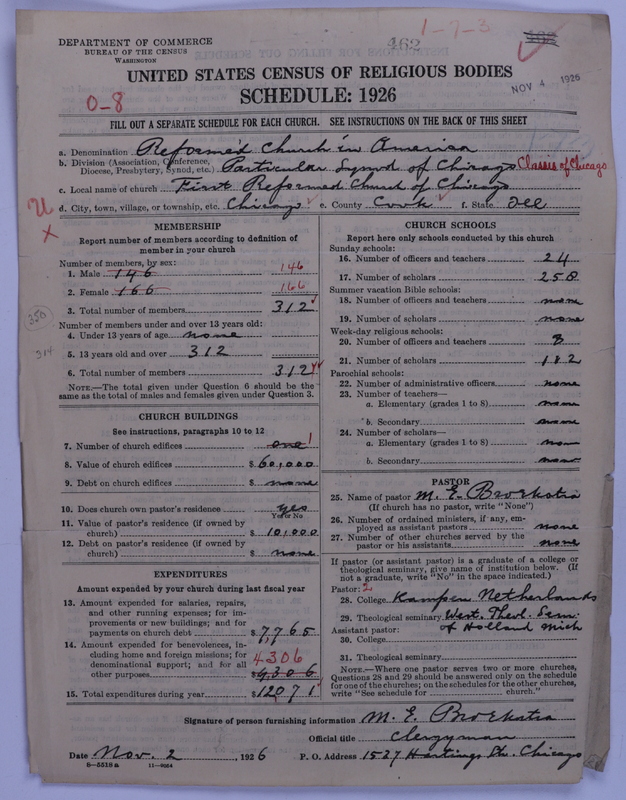 1-7-3
462
DEPARTMENT OF COMMERCE
BUREAU OF THE CENSUS
WASHINGTON
NOV 4 1926
UNITED STATES CENSUS OF RELIGIOUS BODIES
SCHEDULE: 1926
0-8
FILL OUT A SEPARATE SCHEDULE FOR EACH CHURCH. SEE INSTRUCTIONS ON THE BACK OF THIS SHEET
a. Denomination Reformed Church in America
b. Division (Association, Conference, Diocese, Presbytery, Synod, etc.) Particular Synod of Chicago Classis of Chicago
c. Local name of church First Reformed Church of Chicago
d. City, town, village, or township, etc. Chicago e. County Cook f. State Ill
MEMBERSHIP
Report number of members according to definition of
member in your church
Number of members, by sex:
1. Male 146 146
2. Female 166 166
3. Total number of members 312
350
Number of members under and over 13 years old:
4. Under 13 years of age none
314
5. 13 years old and over 312
6. Total number of members 312
NOTE.—The total given under Question 6 should be the
same as the total of males and females given under Question 3.
CHURCH BUILDINGS
See instructions, paragraphs 10 to 12
7. Number of church edifices one 1
8. Value of church edifices $ 60,000
9. Debt on church edifices $ none
10. Does church own pastor's residence yes
Yes or No
11. Value of pastor's residence (if owned by
church) $ 10,000
12. Debt on pastor's residence (if owned by
church) $ none
EXPENDITURES
Amount expended by your church during last fiscal year
13. Amount expended for salaries, repairs,
and other running expenses; for im-
provements or new buildings; and for
payments on church debt $ 7,765
14. Amount expended for benevolences, in-
cluding home and foreign missions; for
denominational support; and for all
other purposes 4306 $ 4,306
15. Total expenditures during year $ 12071
CHURCH SCHOOLS
Report here only schools conducted by this church
Sunday schools:
16. Number of officers and teachers 24
17. Number of scholars 258
Summer vacation Bible schools:
18. Number of officers and teachers none
19. Number of scholars none
Week-day religious schools:
20. Number of officers and teachers 8
21. Number of scholars 182
Parochial schools:
22. Number of administrative officers none
23. Number of teachers—
a. Elementary (grades 1 to 8) none
b. Secondary none
24. Number of scholars—
a. Elementary (grades 1 to 8) none
b. Secondary none
PASTOR
25. Name of pastor M. E. Broekstra
(If church has no pastor, write "None")
26. Number of ordained ministers, if any, em-
ployed as assistant pastors none
27. Number of other churches served by the
pastor or his assistants none
If pastor (or assistant pastor) is a graduate of a college or
theological seminary, give name of institution below. (If
not a graduate, write "No" in the space indicated.)
Pastor: 2
28. College Kampen Netherlands
29. Theological seminary West. Theol. Sem.
of Holland Mich
Assistant pastor:
30. College
31. Theological seminary
NOTE.—Where one pastor serves two or more churches,
Questions 28 and 29 should be answered only on the schedule
for one of the churches; on the schedules for the other churches,
write "See schedule for church."
Signature of person furnishing information M. E. Broekstra
Official title Clergyman
Date Nov. 2, 1926 P. O. Address 1527 Hastings Str. Chicago
8-5518a 11-9054